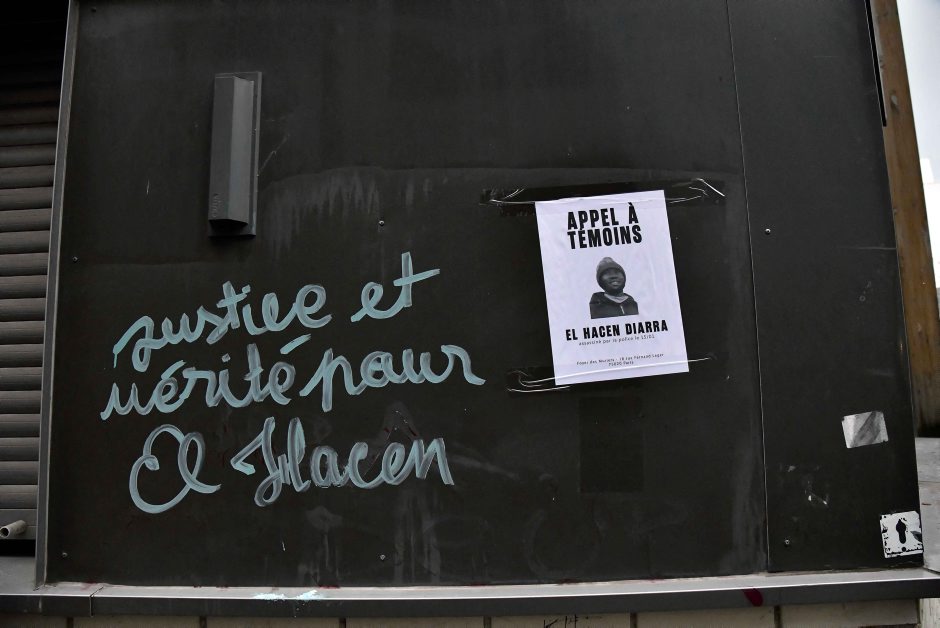 justice et
vérité pour
El Hacen
APPEL À
TÉMOINS
EL HACEN DIARRA
assassiné par la police le 15/01
Foyer des Muriers - 18 rue Fernand Leger
75020 Paris